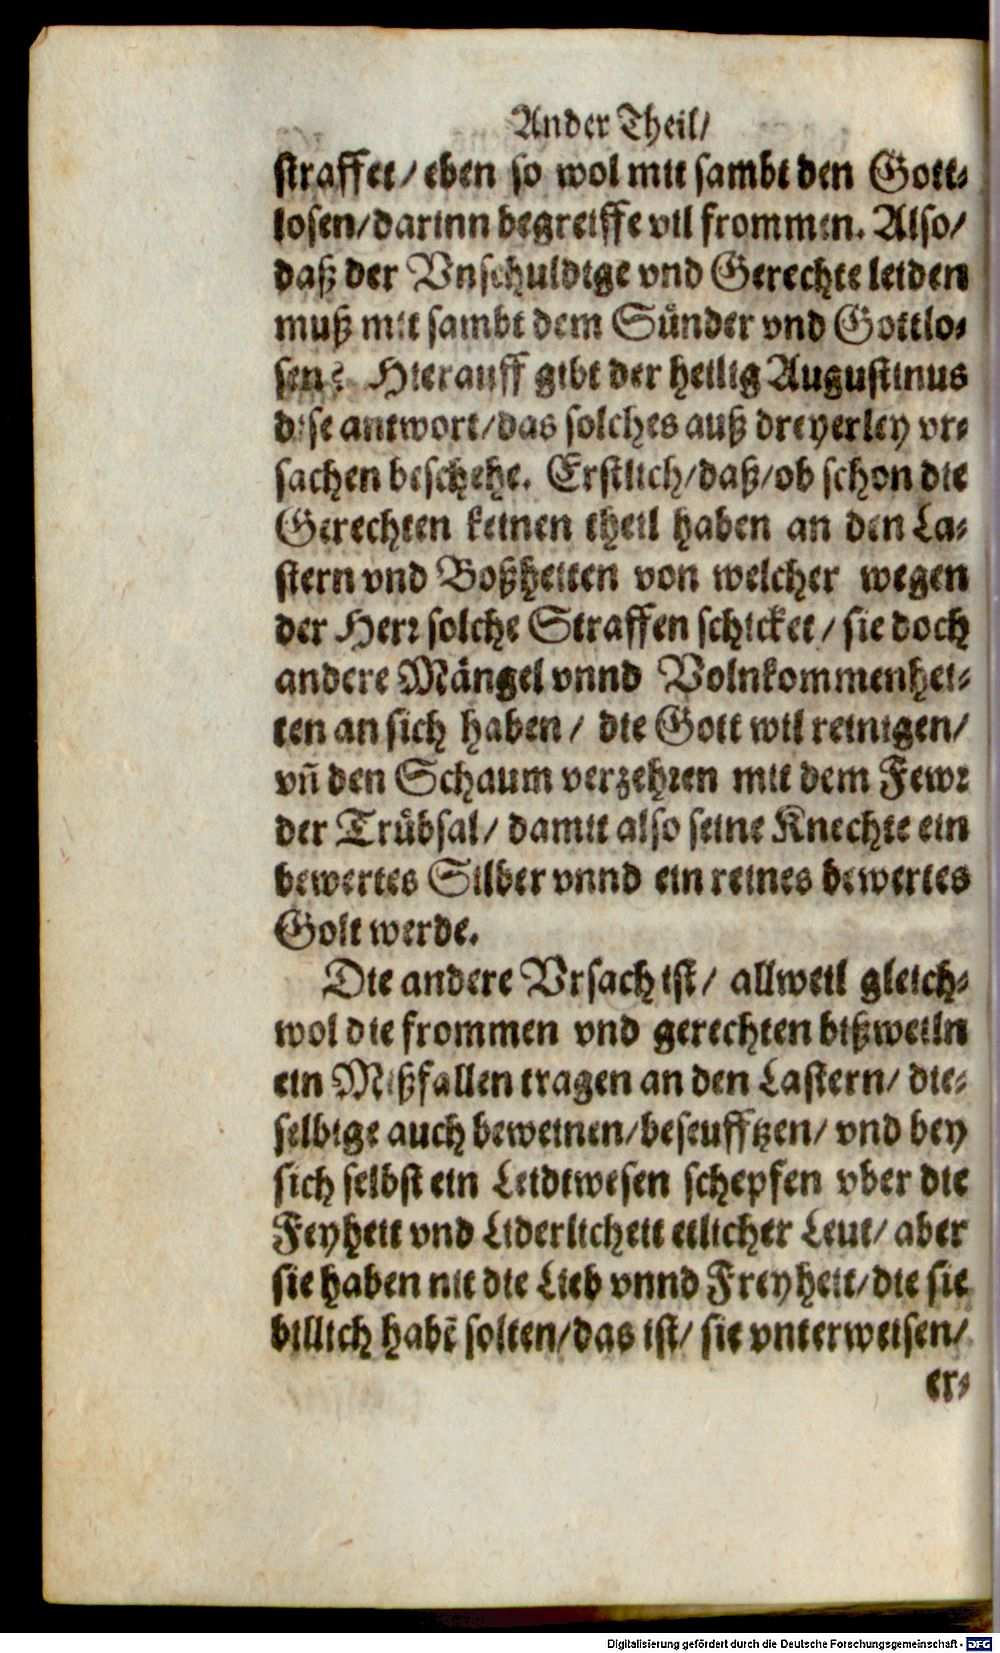 Ander Theil/
straffet/ eben so wol mit sambt den Gott-
losen/ darinn begreiffe vil frommen. Also/
daß der Vnschuldige vnd Gerechte leiden
muß mit sambt dem Sünder vnd Gottlo-
sen? Hierauff gibt der heilig Augustinus
dise antwort/ das solches auß dreyerley vr-
sachen beschehe. Erstlich/ daß/ ob schon die
Gerechten keinen theil haben an den La-
stern vnd Boßheiten von welcher wegen
der Herr solche Straffen schicket/ sie doch
andere Mängel vnnd Volnkommenhei-
ten an sich haben/ die Gott wil reinigen/
vñ den Schaum verzehren mit dem Fewr
der Trübsal/ damit also seine Knechte ein
bewertes Silber vnnd ein reines bewertes
Golt werde.
Die andere Vrsach ist/ allweil gleich-
wol die frommen vnd gerechten bißweiln
ein Mißfallen tragen an den Lastern/ die-
selbige auch beweinen/ beseufftzen/ vnd bey
sich selbst ein Leidtwesen schepfen vber die
Feyheit vnd Liderlicheit etlicher Leut/ aber
sie haben nit die Lieb vnnd Freyheit/ die sie
billich habē solten/ das ist/ sie vnterweisen/
er-
Digitalisierung gefördert durch die Deutsche Forschungsgemeinschaft - DFG